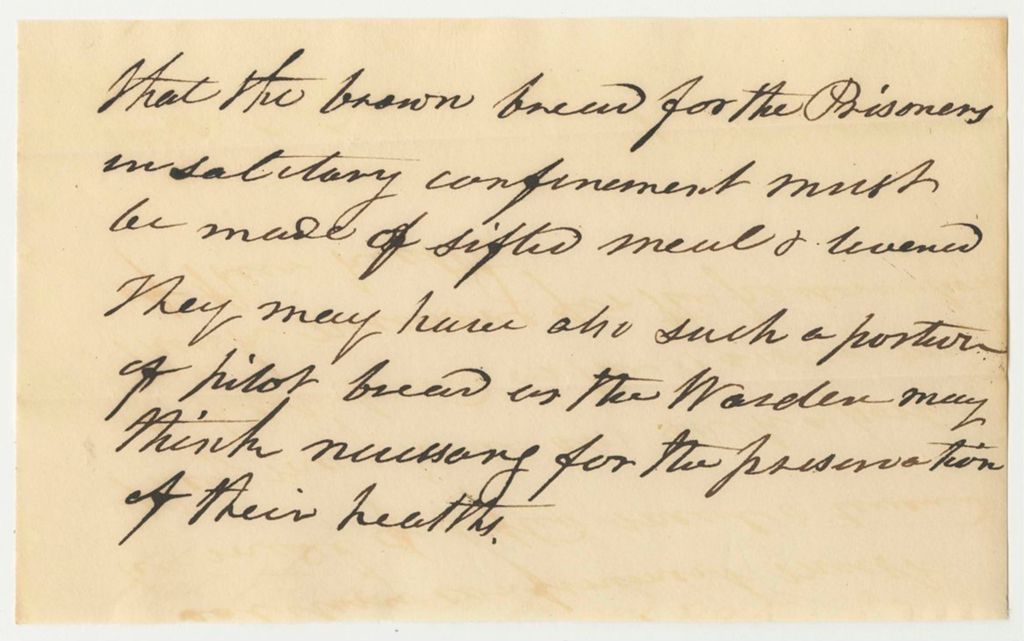 that the brown bread for the Prisoners
in solitary confinement must
be made of sifted meal & levened
They may have also such a portion
of pilot bread as the Warden may
think necessary for the preservation
of their healths.